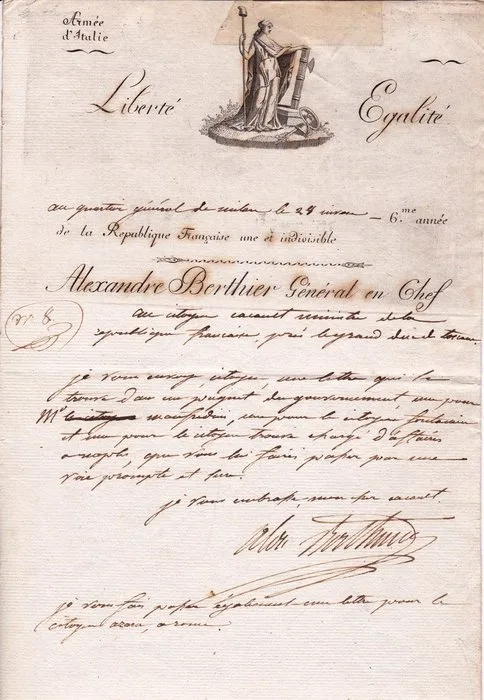 Armée
d'Italie
Liberté Egalité
au quartier général de milan le 24 nivose — 6.me année
de la République Française une et indivisible.
Alexandre Berthier Général en Chef
n° 8
au citoyen cacault ministre de la
republique francaise près le grand duc de toscane
je vous envoy, citoyen, une lettre qui se
trouve dans un paquet du gouvernement, une pour
Mr manfredini, une pour le citoyen
et une pour le citoyen trouvé chargé d'affaires
a naples, que vous lui fairés passer par une
voie prompte et sure.
je vous embrasse, mon cher cacault.
alex Berthier
je vous fais passer également une lettre pour le
citoyen azara, a rome.